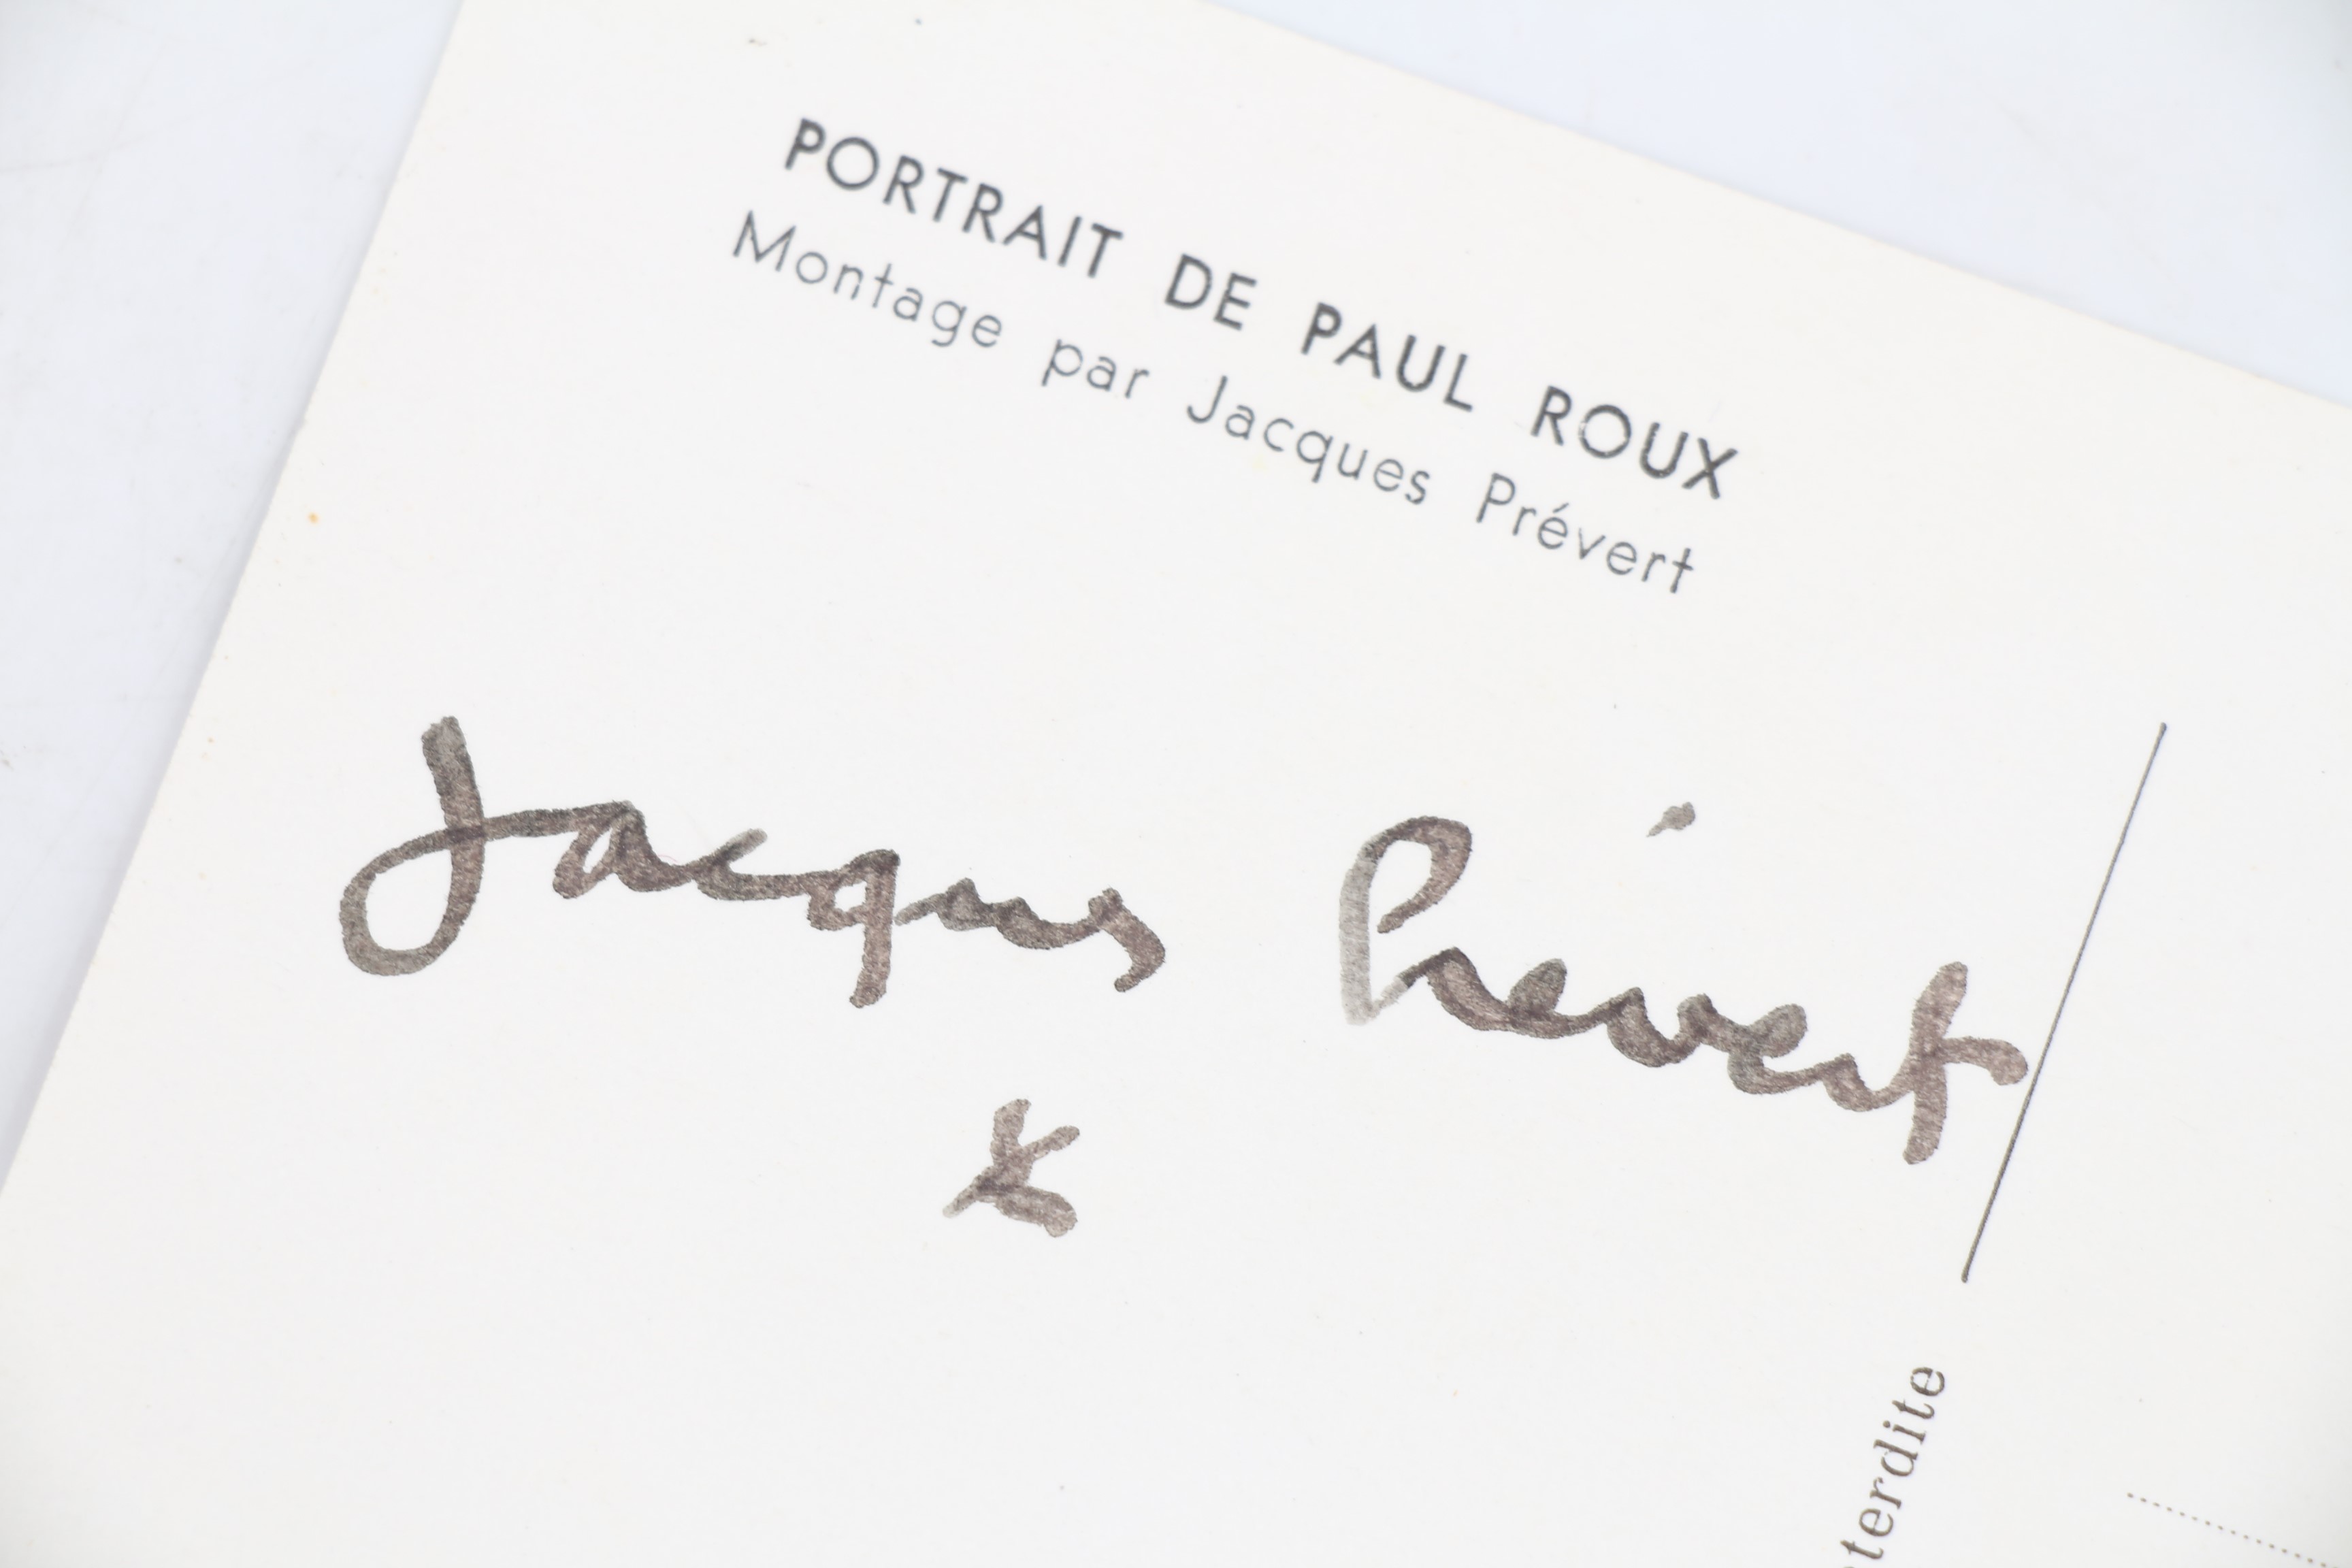 PORTRAIT DE PAUL ROUX
Montage par Jacques Prévert
Jacques Prévert